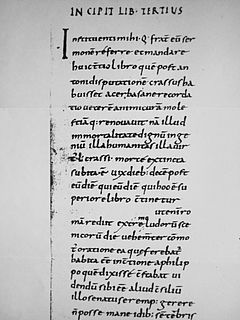 INCIPIT LIB· TERTIUS
Instituenti mihi· Q· frat̄ eu ser
monē referre· et mandare
huic tertio libro quē post an
tonii disputationē crassus ha
buisset acerba sane recorda
tio veterē animi curā mole
stiāq; renovavit· nā illud
immortalitate dignū inge
niū illa humanitas illa virt᷒
L· crassi· morte extincta
subita ē· vix diebus· decē post
eū diē qui eū diē· qui hoc & su
periore libro c̄tinetur
ut enī ro
mā rediit extremo ludorū sce
nicorū die· vehem̄ter cōmo
t᷒ oratione ea quę ferebat᷒
habita eē in c̄tione a philip
po quē dixisse c̄stabat vi
dendū sibi eē aliud c̄siliū
illo senatu se rē mp· gerere
n̄ posse mane idib᷒· septēbris